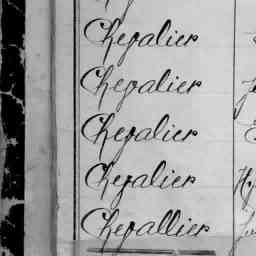 Chevalier
Chevalier
Chevalier
Chevalier
Chevallier